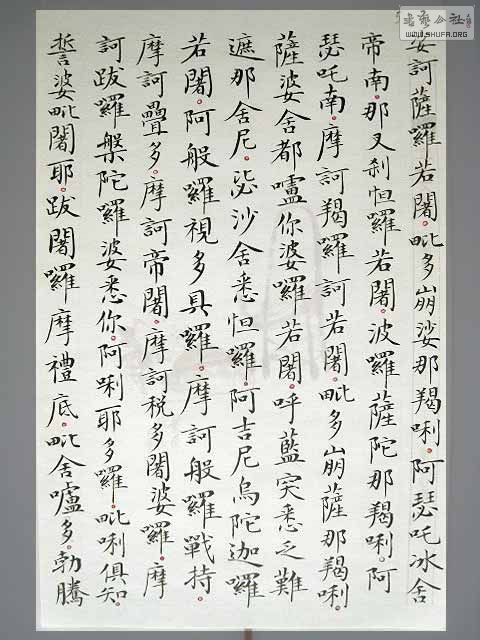 WWW.SHUFA.ORG
娑訶薩囉若闍。毗多崩娑那羯唎。阿瑟吒冰舍
帝南。那叉剎怛囉若闍。波囉薩陀那羯唎。阿
瑟吒南。摩訶羯囉訶若闍。毗多崩薩那羯唎。
薩婆舍都嚧你婆囉若闍。呼藍突悉乏難
遮那舍尼。毖沙舍悉怛囉。阿吉尼烏陀迦囉
若闍。阿般囉視多具囉。摩訶般囉戰持。
摩訶疊多。摩訶帝闍。摩訶稅多闍婆囉。摩
訶跋囉槃陀囉婆悉你。阿唎耶多囉。毗唎俱知。
誓婆毗闍耶。跋闍囉摩禮底。毗舍嚧多。勃騰